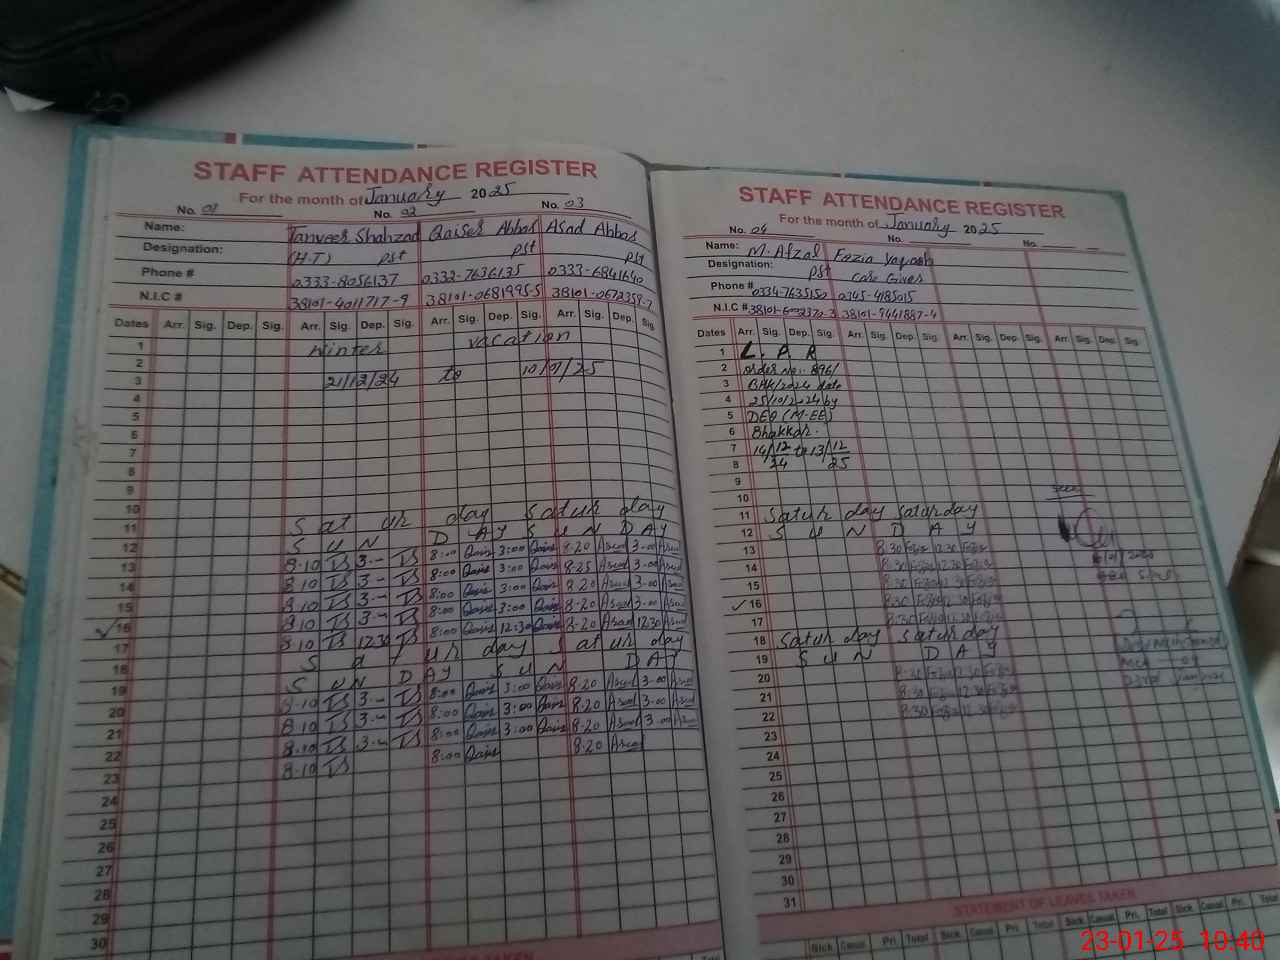 STAFF ATTENDANCE REGISTER
For the month of January 2025
No. 01 No. 02 No. 03
Name: Tanveer Shahzad Qaiser Abbas Asad Abbas
Designation: (H.T) pst pst pst
Phone # 0333-8056137 0332-7636135 0333-6841640
N.I.C # 38101-4011717-9 38101-0681995-5 38101-0672359-7
Dates Arr. Sig. Dep. Sig. Arr. Sig. Dep. Sig. Arr. Sig. Dep. Sig. Arr. Sig. Dep. Sig.
1 Winter vacation
2
3 21/12/24 to 10/01/25
4
5
6
7
8
9
10
11 Satur day Satur day
12 SUN DAY SUN DAY
13 8.10 TS 3 TS 8:00 Qais 3:00 Qais 8.20 Asad 3.00 Asad
14 8.10 TS 3 TS 8:00 Qais 3:00 Qais 8.25 Asad 3.00 Asad
15 8.10 TS 3 TS 8:00 Qais 3:00 Qais 8.20 Asad 3.00 Asad
16 8.10 TS 3 TS 8:00 Qais 3:00 Qais 8.20 Asad 3.00 Asad
17 8.10 TS 12.30 TS 8:00 Qais 12:30 Qais 8.20 Asad 12.30 Asad
18 Satur day Satur day
19 SUN DAY SUN DAY
20 8.10 TS 3 TS 8:00 Qais 3:00 Qais 8.20 Asad 3.00 Asad
21 8.10 TS 3 TS 8:00 Qais 3:00 Qais 8.20 Asad 3.00 Asad
22 8.10 TS 3 TS 8:00 Qais 3:00 Qais 8.20 Asad 3.00 Asad
23 8.10 TS 8:00 Qais 8.20 Asad
24
25
26
27
28
29
30
STAFF ATTENDANCE REGISTER
For the month of January 2025
No. 04 No. No.
Name: M. Afzal Fozia
Designation: pst Care Giver
Phone # 0334-7635150 0345-4185015
N.I.C # 38101-9441887-4
Dates Arr. Sig. Dep. Sig. Arr. Sig. Dep. Sig. Arr. Sig. Dep. Sig. Arr. Sig. Dep. Sig.
1 L.P.R
2 order No. 896/
3 BHK/2024 date
4 25/10/2024 by
5 DEO (M-EE)
6 Bhakkar.
7 14/12/24 to 13/12/25
8
9
10
11 Satur day Saturday
12 SUN DAY
13 8.30 12.30
14 8.30 12.30
15 8.30 12.30
16 8.30 12.30
17 8.30 12.30
18 Satur day Saturday
19 SUN DAY
20 8.30 12.30
21 8.30 12.30
22 8.30 12.30
23
24
25
26
27
28
29
30
31
Seen
STATEMENT OF LEAVES TAKEN
Sick. Casual. Pri. Total Sick. Casual. Pri. Total Sick. Casual. Pri. Total
23-01-25 10:40